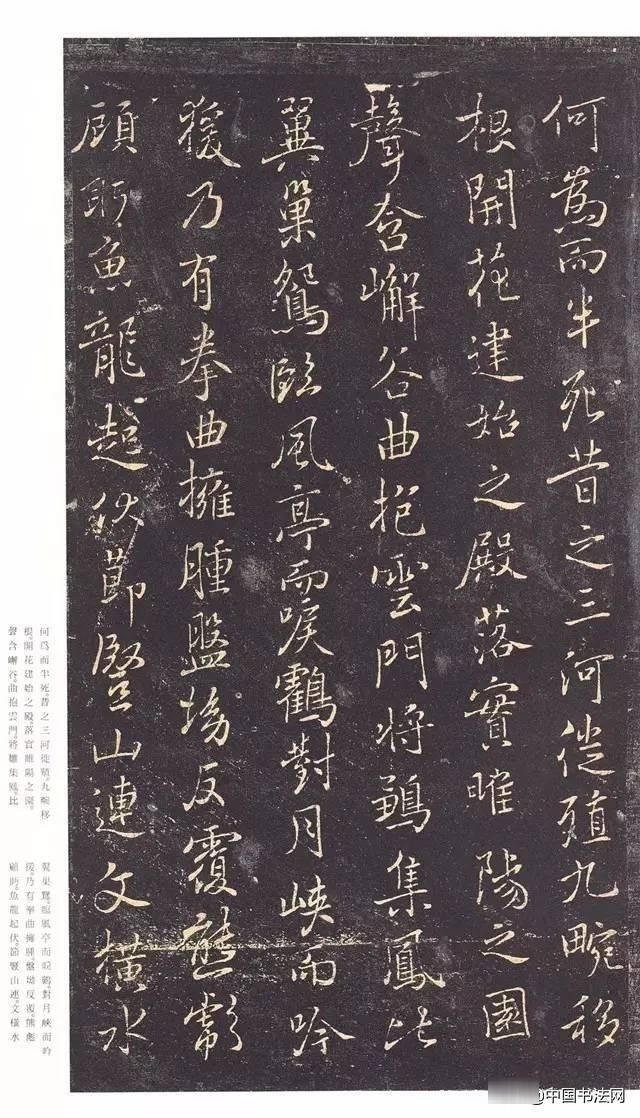 何為而半死昔之三河徙殖九畹移
根開花建始之殿落實睢陽之園
聲含嶰谷曲抱雲門將鶵集鳳比
翼巢鴛臨風亭而唳鶴對月峽而吟
猨乃有拳曲擁腫盤坳反覆熊彪
顧盻魚龍起伏節豎山連文橫水
何爲而半死。昔之三河徙殖。九畹移
根。開花建始之殿。落實睢陽之園。
聲含嶰谷。曲抱雲門。將雛集鳳。比
翼巢鴛。臨風亭而唳鶴。對月峽而吟
猨。乃有拳曲擁腫。盤坳反覆。熊彪
顧盼。魚龍起伏。節豎山連。文橫水
@中国书法网